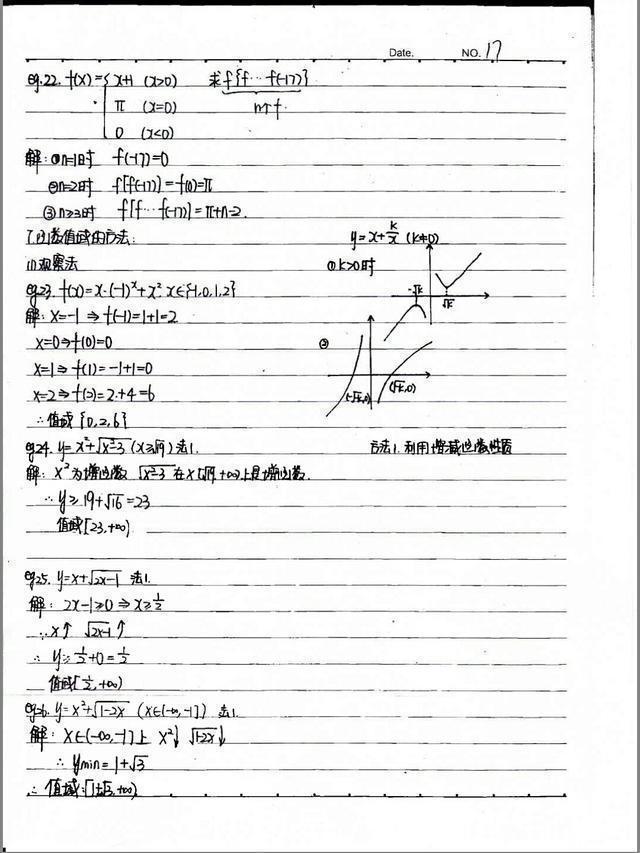 Date. NO. 17
eg.22. f(x)={ x+1 (x>0) 求f{f…f(-17)}
π (x=0) n个f
0 (x<0)
解: ①n=1时 f(-17)=0
②n=2时 f[f(-17)]=f(0)=π
③n≥3时 f[f…f(-17)]=π+n-2.
7.函数值域的方法:
y=x+k/x (k≠0)
(1)观察法
①k>0时
eg23. f(x)=x·(-1)^x+x², x∈{-1,0,1,2}
-√k √k
解: x=-1 ⇒ f(-1)=1+1=2
x=0⇒f(0)=0
②
x=1⇒f(1)=-1+1=0
x=2⇒f(2)=2+4=6
(-√k,0) (√k,0)
∴值域{0,2,6}
eg24. y=x²+√(x²-3) (x≥√19) 法1.
方法1. 利用增减函数性质
解: x²为增函数 √(x²-3) 在x[√19,+∞)上是增函数.
∴ y≥19+√16=23
值域[23,+∞)
eg25. y=x+√(2x-1) 法1.
解: 2x-1≥0 ⇒ x≥1/2
∵x↑ √(2x-1)↑
∴ y≥1/2+0=1/2
值域[1/2,+∞)
eg26. y=x²+√(1-2x) (x∈(-∞,-1]) 法1.
解: x∈(-∞,-1]上 x²↓ √(1-2x)↓
∴ ymin=1+√3
∴ 值域:[1+√3,+∞)